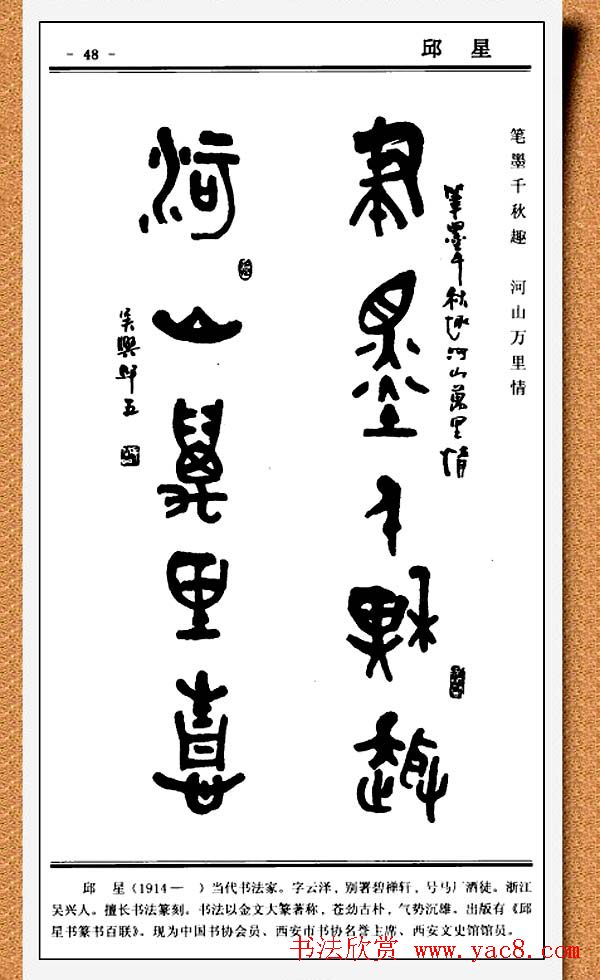 - 48 -
邱 星
笔墨千秋趣 河山万里情
筆墨千秋趣河山萬里情
筆墨千秋趣
河山萬里情
吴興邱五
邱 星(1914— )当代书法家。字云泽,别署碧禅轩,号马厂酒徒。浙江
吴兴人。擅长书法篆刻。书法以金文大篆著称,苍劲古朴,气势沉雄。出版有《邱
星书篆书百联》。现为中国书协会员、西安市书协名誉主席、西安文史馆馆员。
书法欣赏 www.yac8.com